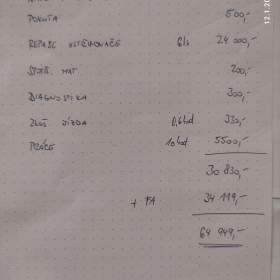 POKUTA 500,-
REPASE VSTŘIKOVAČE 6ks 24 000,-
SPOTŘ. MAT 200,-
DIAGNOSTIKA 300,-
ZKUŠ. JÍZDA 0,6hod 330,-
PRÁCE 10hod 5500,-
30 830,-
+ FA 34 119,-
64 949,-
12.1.20